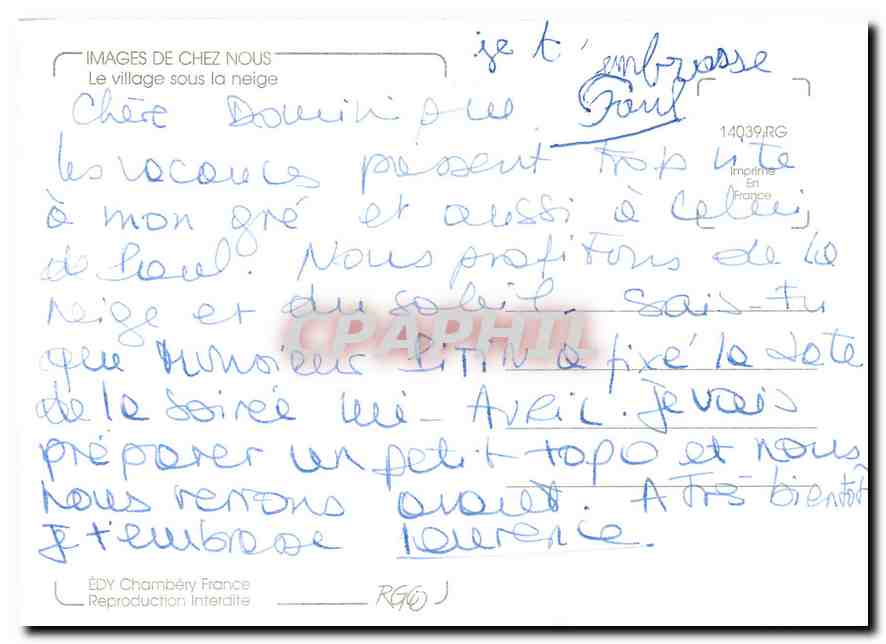 IMAGES DE CHEZ NOUS
Le village sous la neige
je t'embrasse
Paul
14039/RG
Imprimé
En
France
Chère
les vacances passent trop vite
à mon gré et aussi à celui
de Paul. Nous profitons de la
neige et du soleil. Sais-tu
que Monsieur a fixé la date
de la soirée mi-Avril. Je vais
préparer un petit topo et nous
nous verrons avant. A Très bientôt
je t'embrasse Laurence.
CPAPHIL
ÉDY Chambéry France
Reproduction Interdite
RG